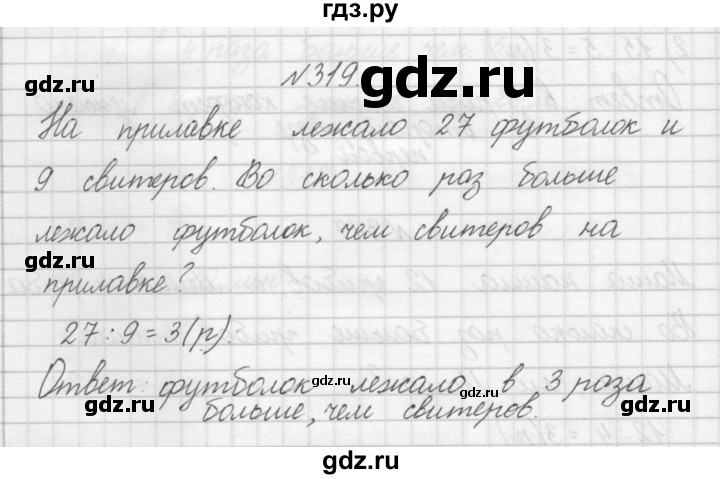 гдз.ру
№319.
На прилавке лежало 27 футболок и
9 свитеров. Во сколько раз больше
лежало футболок, чем свитеров на
прилавке?
27 : 9 = 3 (р).
Ответ: футболок лежало в 3 раза
больше, чем свитеров.
gdz.ru
gdz.ru
gdz.ru
gdz.ru
gdz.ru
gdz.ru
gdz.ru
gdz.ru
гдз.ру